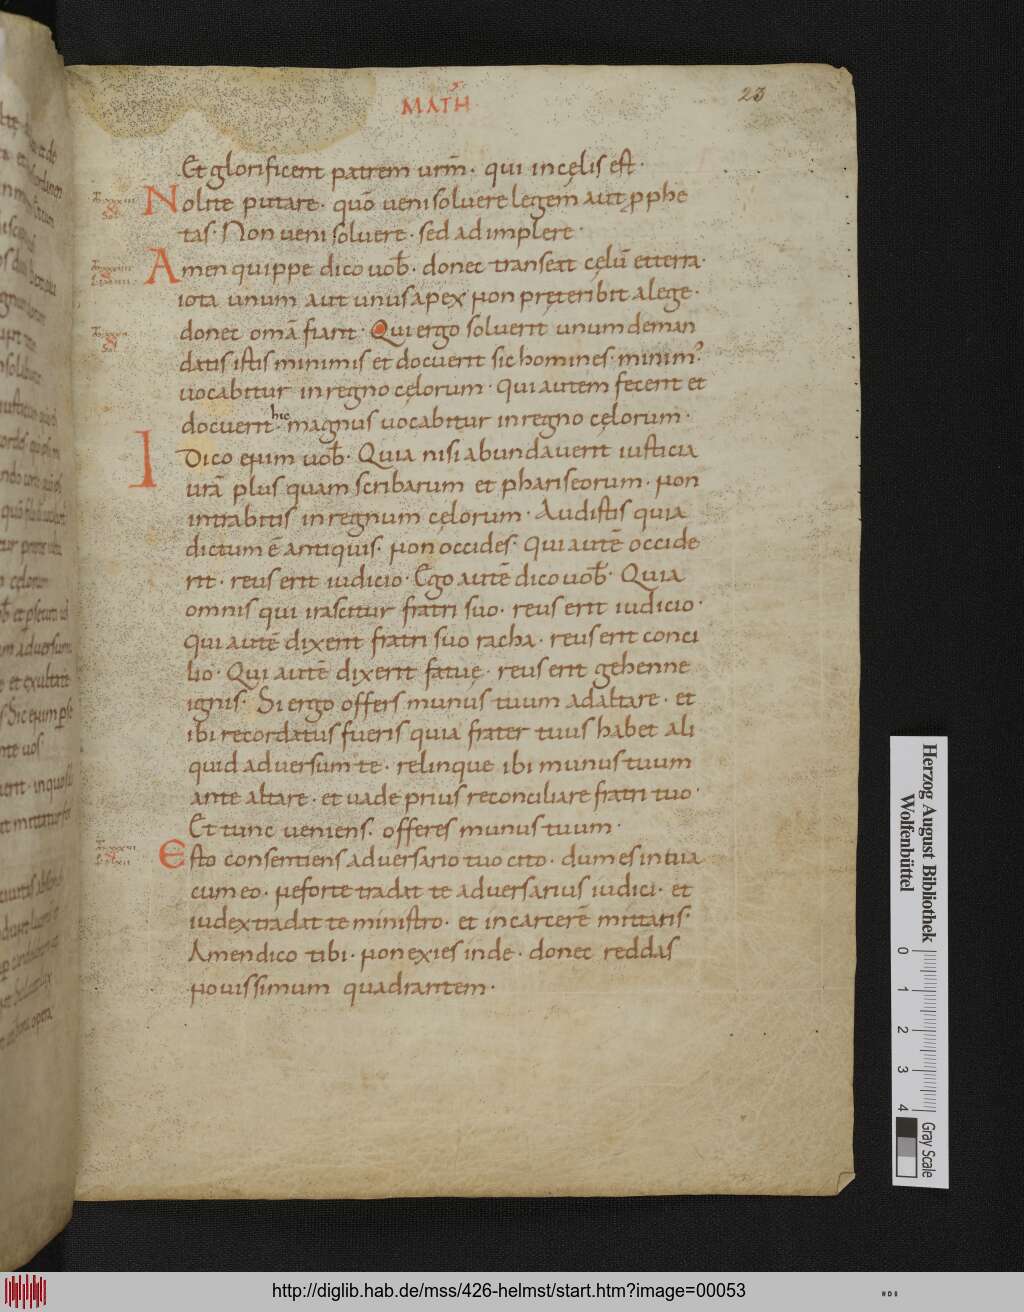 MATH
23
Et glorificent patrem urm̄· qui in cęlis est·
Nolite putare· quō ueni soluere legem aut pphe
tas· Non ueni soluere· sed adimplere·
Amen quippe dico uob̄· donec transeat cęlū et terra·
iota unum aut unus apex non pręteribit a lege·
donec omā fiant· Qui ergo soluerit unum de man
datis istis minimis et docuerit sic homines· minim᾽
uocabitur in regno cęlorum· Qui autem fecerit et
docuerit· hic magnus uocabitur in regno cęlorum·
Dico enim uob̄· Quia nisi abundauerit iusticia
urā plus quam scribarum et phariseorum· non
intrabitis in regnum cęlorum· Audistis quia
dictum ē antiquis· non occides· Qui autē occide
rit· reus erit iudicio· Ego autē dico uob̄· Quia
omnis qui irascitur fratri suo· reus erit iudicio·
Qui autē dixerit fratri suo racha· reus erit conci
lio· Qui autē dixerit fatuę· reus erit gehenne
ignis· Si ergo offers munus tuum ad altare· et
ibi recordatus fueris quia frater tuus habet ali
quid aduersum te· relinque ibi munus tuum
ante altare· et uade prius reconciliare fratri tuo·
Et tunc ueniens· offeres munus tuum·
Esto consentiens aduersario tuo cito· dum es in uia
cum eo· ne forte tradat te aduersarius iudici· et
iudex tradat te ministro· et in carcerē mittaris·
Amen dico tibi· non exies inde· donec reddas
nouissimum quadrantem·
Herzog August Bibliothek
Wolfenbüttel
0 1 2 3 4
Gray Scale
http://diglib.hab.de/mss/426-helmst/start.htm?image=00053